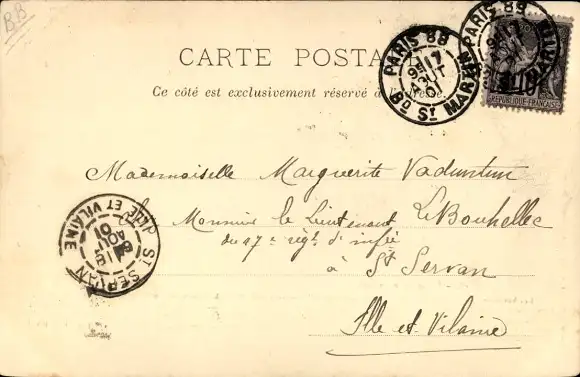 B-B
CARTE POSTA
Ce côté est exclusivement réservé à l'adresse.
PARIS 88
9E 17
AOUT
01
Bd St MARTIN
PARIS 88
17
10
REPUBLIQUE FRANÇAISE
Mademoiselle Marguerite
Chez Monsieur le Lieutenant Le Bouhellec
du 47e régt d'infie
à St Servan
Ille et Vilaine
ST SERVAN
ILLE ET VILAINE
18
AOUT
01